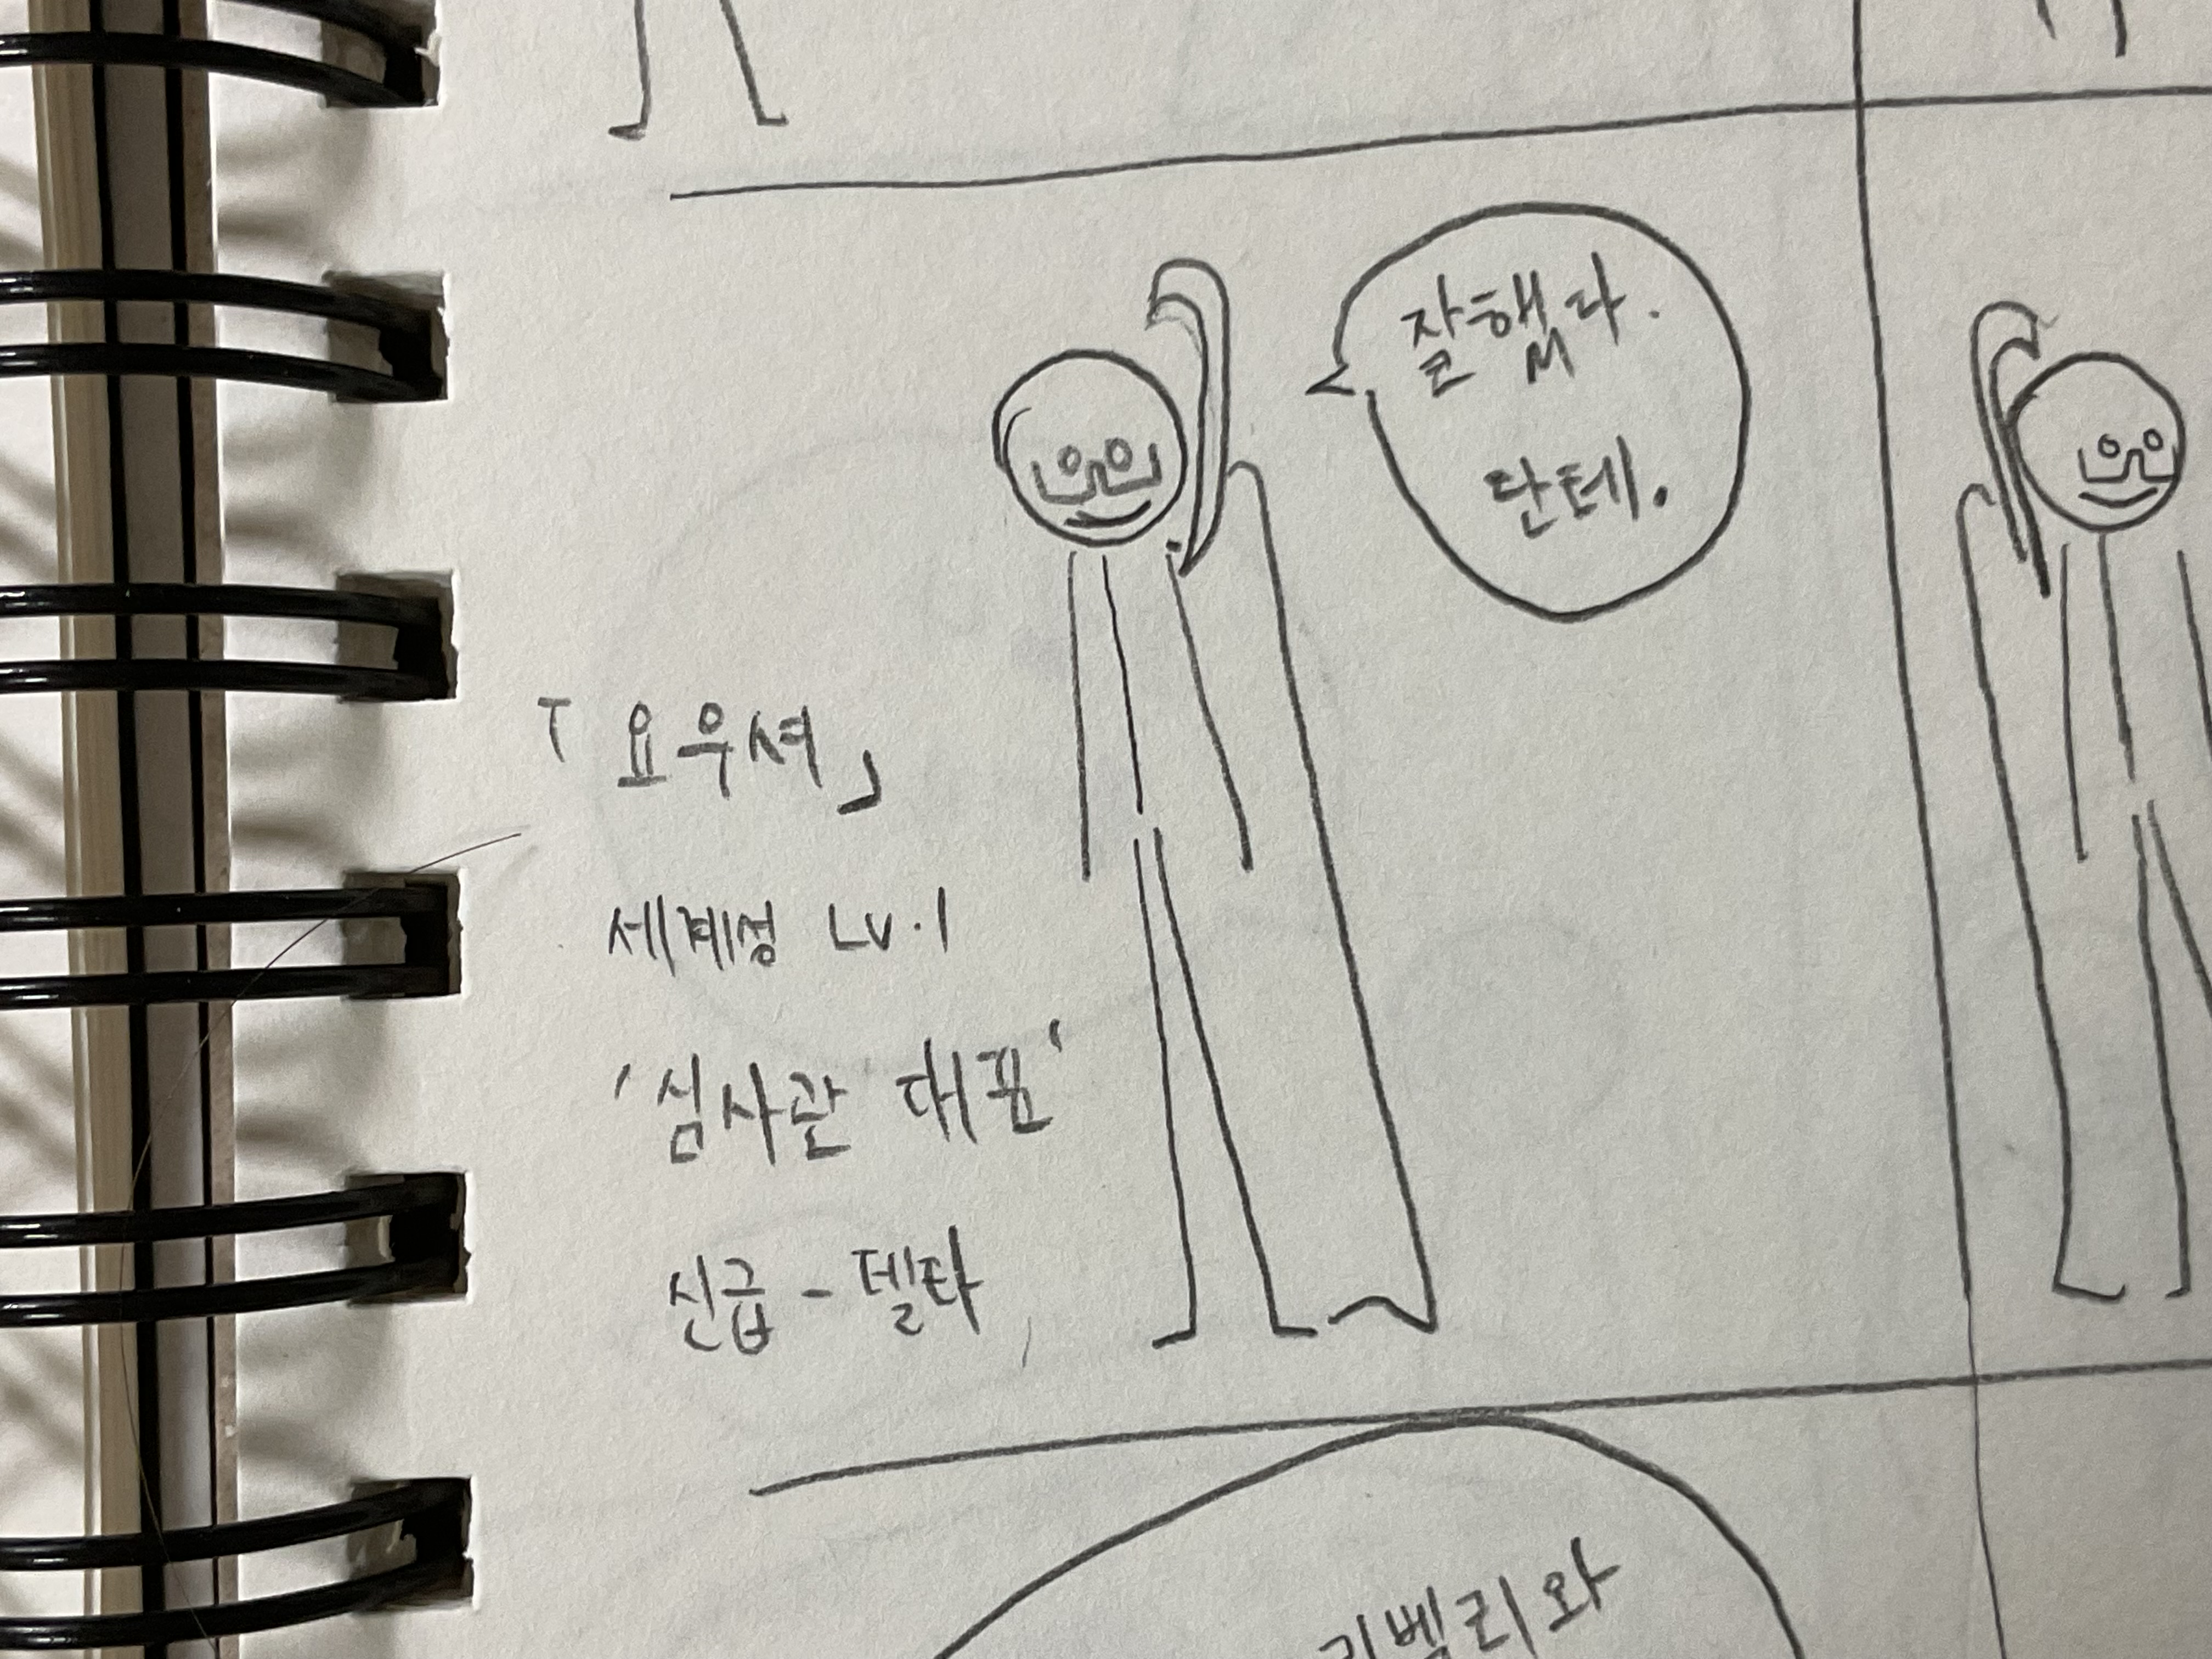 잘했다.
단테.
「요우셔」
세계성 Lv.1
'심사관 대표'
신급 - 델타
리벨리와